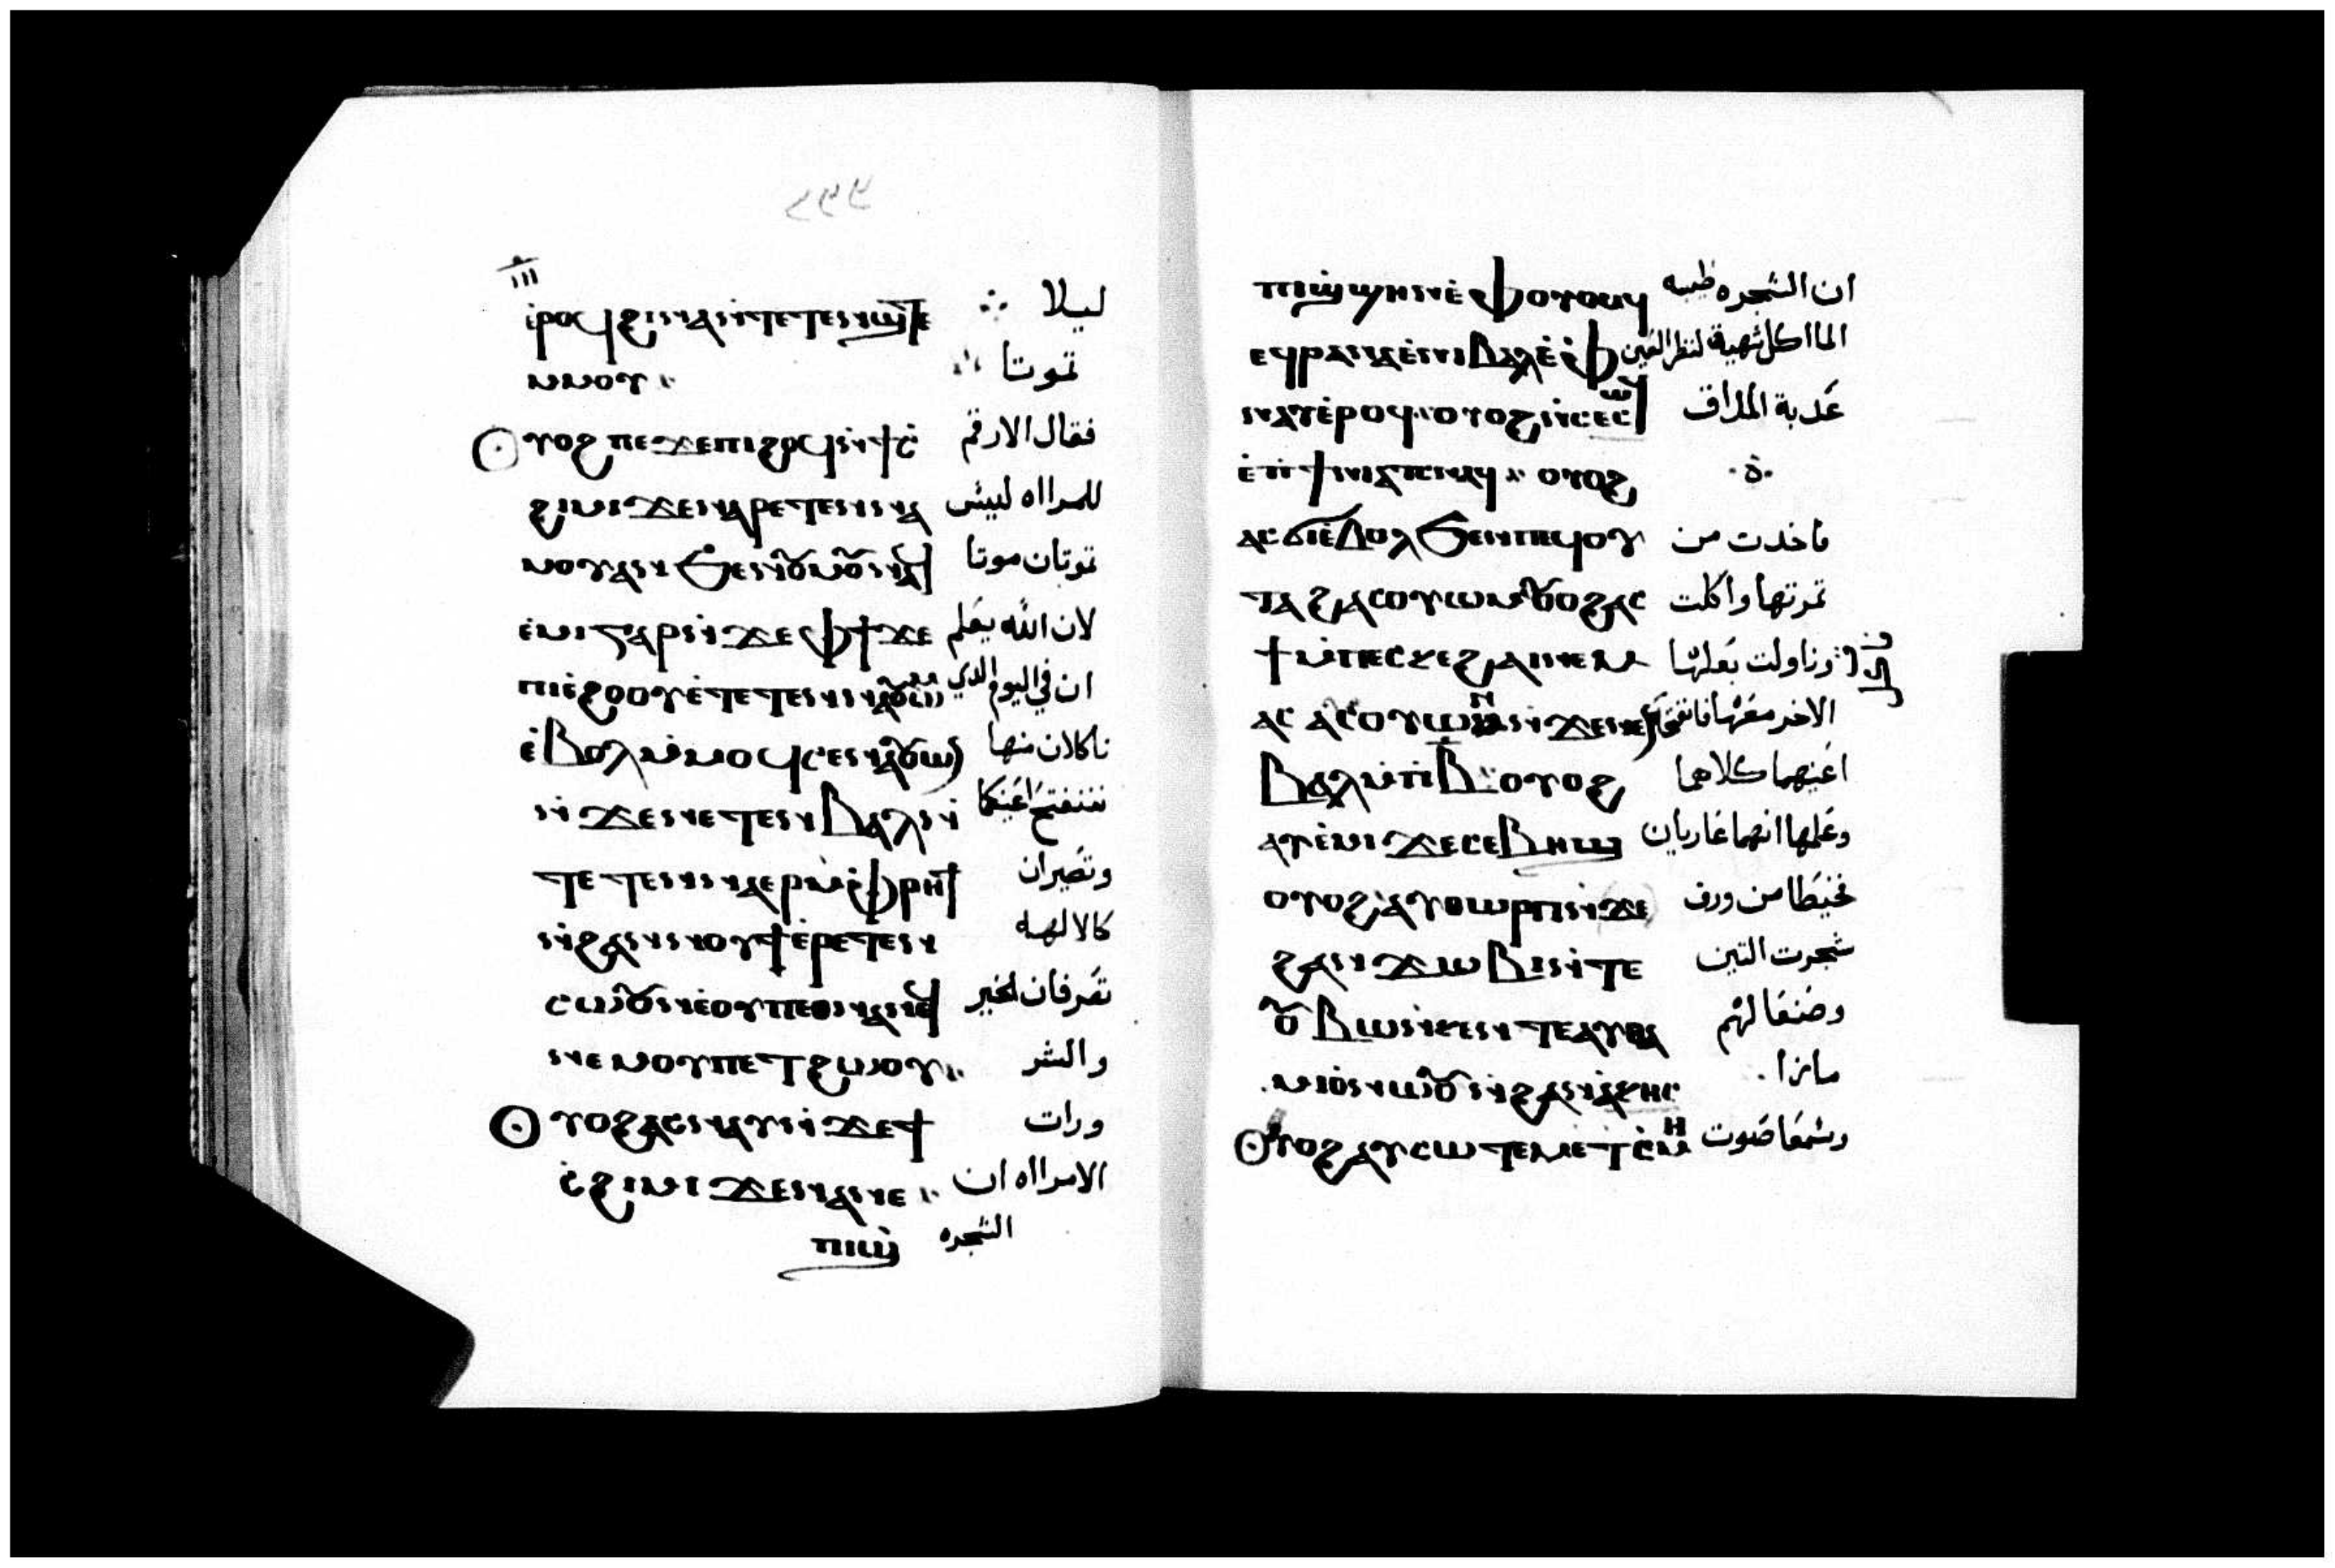 ⲉ̀ⲣⲟϥ ϩⲓⲛⲁ ⲛ̀ⲧⲉⲧⲉⲛϣⲧⲉ ليلا
ⲙⲙⲟⲩ تموتا
ⲟⲩⲟϩ ⲡⲉϫⲉ ⲡⲓϩⲟϥ ⲛ̀ϯⲥ̀ فقال الارقم
ϩⲓⲙⲓ ϫⲉ ⲛⲁⲣⲉⲧⲉⲛⲛⲁ للمرااه ليس
ⲙⲟⲩ ⲁⲛ ϧⲉⲛ ⲟⲩⲙⲟⲩ ⲛⲁϥ تموتان موتا
ⲉ̀ⲙⲓ ⲅⲁⲣ ⲛ̀ϫⲉ ⲫϯ ϫⲉ لان الله يعلم
ⲡⲓⲉ̀ϩⲟⲟⲩ ⲉ̀ⲧⲉⲧⲉⲛⲛⲁⲟⲩⲱⲙ ان في اليوم الدي
ⲉ̀ⲃⲟⲗ ⲙ̀ⲙⲟϥ ⲥⲉⲛⲁⲟⲩⲱⲛ تاكلان منها
ⲛ̀ϫⲉ ⲛⲉⲧⲉⲛⲃⲁⲗ ⲛ̀ تننفتح اعينكما
ⲧⲉⲧⲉⲛⲛⲁⲉⲣ ⲙ̀ⲫⲣⲏϯ وتصيران
ⲛ̀ϩⲁⲛⲛⲟⲩϯ ⲉ̀ⲣⲉⲧⲉⲛ كالالهه
ⲥⲱⲟⲩⲛ ⲛ̀ⲟⲩⲡⲉⲑⲛⲁⲛⲉϥ تعرفان الخير
ⲛⲉⲙ ⲟⲩⲡⲉⲧϩⲱⲟⲩ والشر
ⲟⲩⲟϩ ⲁⲥⲛⲁⲩ ⲛ̀ϫⲉ ϯ ورات
ⲥ̀ϩⲓⲙⲓ ϫⲉ ⲛⲁⲛⲉ الامرااه ان
ⲡⲓϣ̀ الشجره
ⲡⲓϣ̀ϣⲏⲛ ⲉ̀ⲫⲟⲩⲟⲙϥ ان الشجره طيبه
ⲉϥⲣⲁⲛⲁⲉ̀ ⲛⲓⲃⲁⲗ ⲉ̀ⲫ الماكل شهية لنظر العين
ⲛⲁⲩ ⲉ̀ⲣⲟϥ ⲟⲩⲟϩ ⲛ̀ⲥⲉⲥⲱϥ عدبة المداق
ⲉ̀ⲡ̀ϯⲛⲓⲁⲧⲛ ⲙ̀ⲙⲟϥ ⲟⲩⲟϩ
ⲁⲥϭⲓ ⲉ̀ⲃⲟⲗ ϧⲉⲛ ⲡⲉϥⲟⲩ فاخدت من
ⲧⲁϩ ⲁⲥⲟⲩⲱⲙ ⲟⲩⲟϩ ⲁⲥ تمرتها واكلت
ϯ ⲙ̀ⲡⲉⲥⲕⲉϩⲁⲓ ⲛⲉⲙ وناولت بعلها
ⲁⲥ ⲁⲥⲟⲩⲱⲛ ⲛ̀ϫⲉ ⲛⲉ الاخر معها فانفتحا
ⲃⲁⲗ ⲙ̀ⲡⲓⲃ̅ ⲟⲩⲟϩ اعينهما كلاهما
ⲁⲩⲉ̀ⲙⲓ ϫⲉ ⲥⲉⲃⲏϣ وعلما انهما عاريان
ⲟⲩⲟϩ ⲁⲩⲑⲱⲣⲡ ⲛ̀ϫⲉ فخيطا من ورق
ϩⲁⲛϫⲱⲃⲓ ⲛ̀ⲧⲉ شجرت التين
ⲟⲩⲃⲱ ⲛ̀ⲕⲉⲛⲧⲉ ⲁⲩⲑⲁ وصنعا لهم
ⲙⲓⲟ̀ ⲛⲱⲟⲩ ⲛ̀ϩⲁⲛⲁ̀ⲕⲏⲥ مازرا
ⲟⲩⲟϩ ⲁⲩⲥⲱⲧⲉⲙ ⲉ̀ⲧⲥ̀ⲙⲏ وسمعا صوت